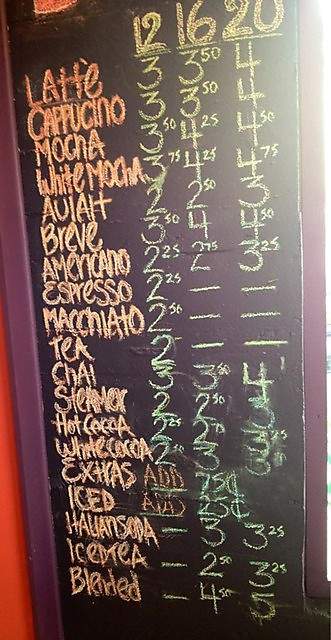 12 16 20
LATTE 3 3.50 4
CAPPUCINO 3 3.50 4
MOCHA 3.50 4.25 4.50
WHITE MOCHA 3.75 4.25 4.75
AULAIT 2 2.50 3
BREVE 3.50 4 4.50
AMERICANO 2.25 2.75 3.25
ESPRESSO 2.25 — —
MACCHIATO 2.50 — —
TEA 2 — —
CHAI 3 3.50 4
STEAMER 2 2.50 3
HOT COCOA 2.25
WHITE COCOA 2.50
EXTRAS ADD 75¢
ICED ADD
ITALIAN SODA — 3 3.25
ICED TEA — 2.50 3.25
Blended — 4.50 5